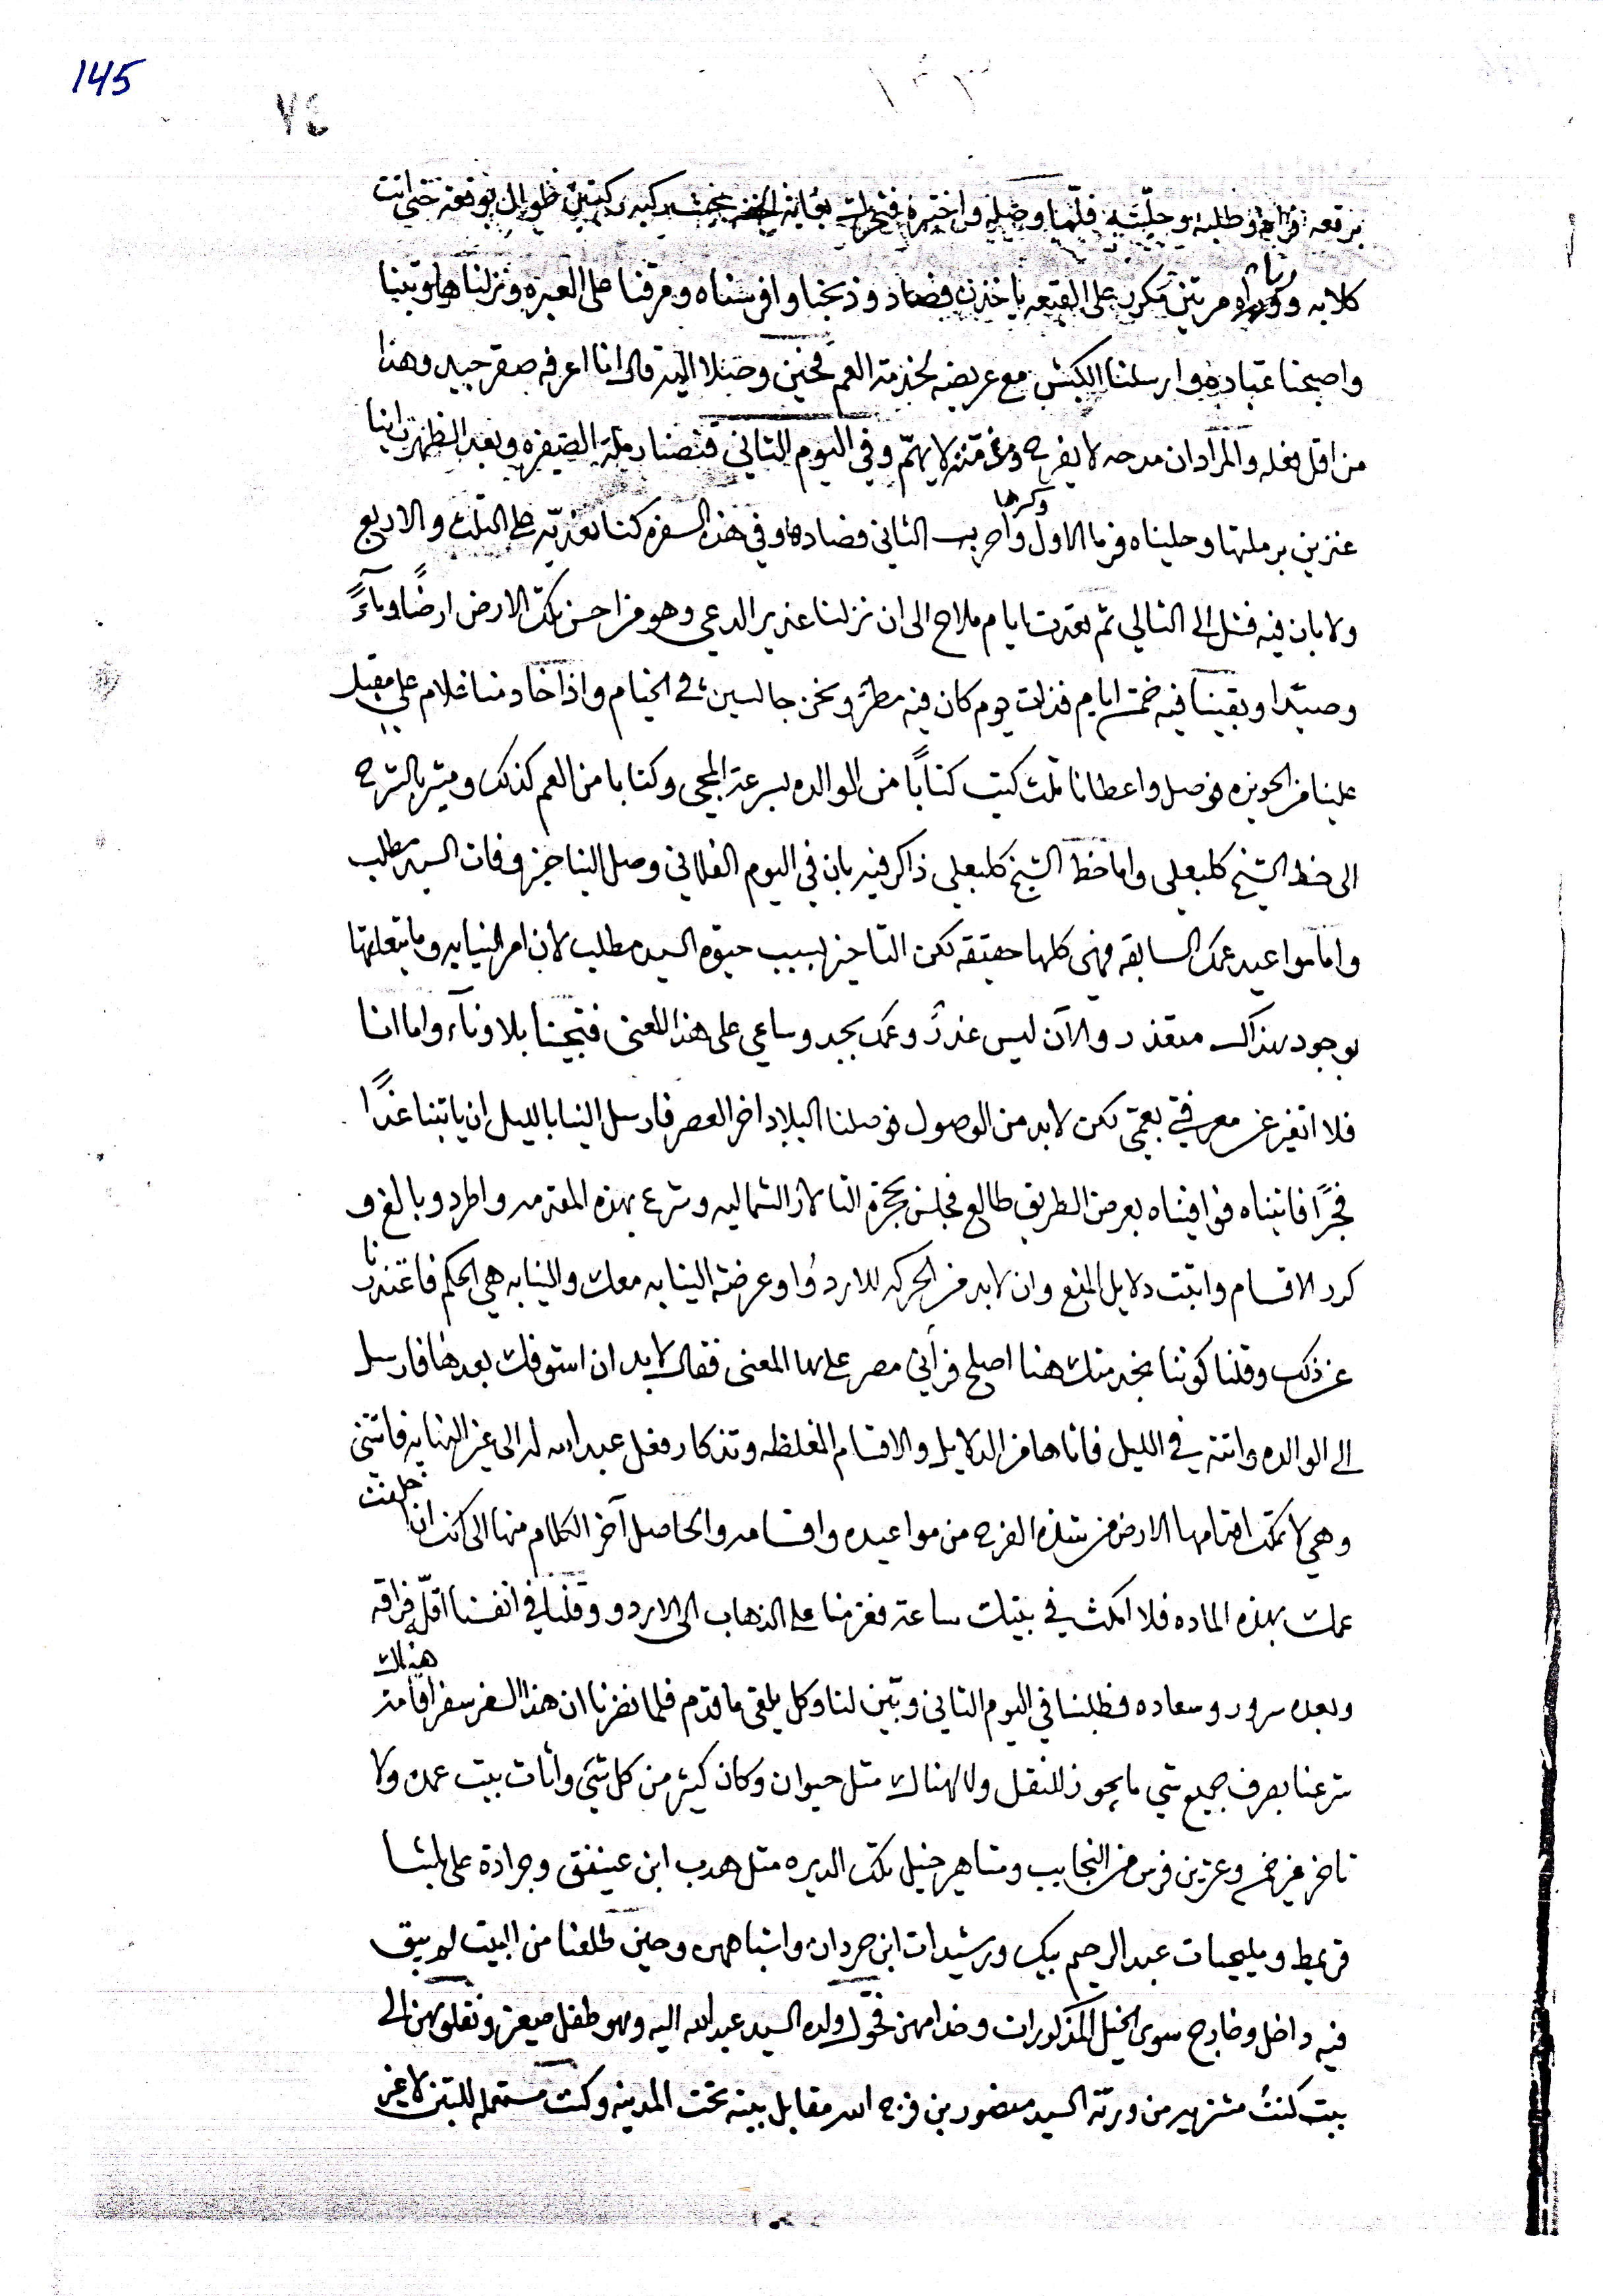 145
٧٤
١٠٣
برقعه وطلبه وحليته فلما وصله واختبره طوال بوقعه حتى اتت
كلابه مرتين على القبعه ياخذن فصاد وذبحنا وافرسناه ومرقنا على العبره ونزلناها وبتنا
واصبحنا عباده وارسلنا الكبش مع عريضه لخدمة العم فحين وصلا اليه قال انا اعرفه صقر جيد وهذا
من اقل فعله والمراد ان مدحه لا يفرح ومذمته لا يهمّ وفي اليوم الثاني قنصنا رملة الصيفره وبعد الظهر راينا
عنزين برملتها وحليناه فرما الاول وكرها واضرب الثاني فصادها وفي هذه السفره كنا نعديه على الثلث والاربع
ولا بان فيه فشل الى التالي ثم تعدت ايام ملاح الى ان نزلنا غدير الدعي وهو من احسن تلك الارض ارضًا ومآءً
وصيدا وبقينا فيه خمسة ايام فذات يوم كان فيه مطرٌ ونحن جالسين في الخيام واذا خادمنا غلام علي مقبل
علينا من الحويزه فوصل واعطانا ثلث كتب كتابًا من الوالده بسرعة المجي وكتابا من العم كذلك ومشير بالشرح
الى خط الشيخ كلبعلي واما خط الشيخ كلبعلي ذاكر فيه بان في اليوم الفلاني وصل الينا خبر وفات السيد مطلب
واما مواعيد عمك السابقه فهي كلها حقيقه لكن التاخير بسبب حيوة السيد مطلب لان امر النيابه وما يتعلقها
بوجود هذاك متعذر والآن ليس عذرٌ وعمك بجد وساعي على هذا المعنى فتجينا بلا ونآء واما انا
فلا اتغير عن معرفتي بعمي لكن لابد من الوصول فوصلنا البلاد اخر العصر فارسل الينا بالليل ان ياتينا غدًا
فجرًا فاتيناه فوافيناه بعرض الطريق طالع فجلس بحجرة التالار الشماليه وشرع بهذه المقدمه واطرد وبالغ و
كرر الاقسام واثبت دلايل المنع وان لابد من الحركه للاردو وعرضة النيابه معك والنيابه هي الحكم فاعتذرنا
عن ذلك وقلنا كوننا بخدمتك هنا اصلح فراني مصر على هذا المعنى فقال لابد ان اشوفك بعدها فارسل
الى الوالده واتته في الليل فاتاها من الدلايل والاقسام المغلظه وتذكار فعل عبد الله له الى غير النهايه فاتتني
وهي لا تمكن اقدامها الارض من شدة الفرح من مواعيده واقسامه والحاصل آخر الكلام منها الى كنت ان خلفت
عمك بهذه الماده فلا امكث في بيتك ساعة فعزمنا على الذهاب الى الاردو وقلنا في انفسنا اقلّ فراقه
وبعده سرور وسعاده فطلبنا في اليوم الثاني وبيّن لنا وكل يلقى ما قدم فلما نضرنا ان هذا السفر سفر اقامة هناك
شرعنا بصرف جميع شي ما يجوز للنقل ولا لهناك مثل حيوان وكان كثير من كل شي واثاث بيت عمده ولا
تاخر غير خمس وعشرين فرس من النجايب ومشاهير خيل تلك الديره مثل هدب ابن عينفق وجرادة علي باشا
قريط ومليحيات عبد الرحيم بيك ورشيدات ابن جردان واشباههن وحين طلعنا من البيت لم يبق
فيه داخل وخارج سوى الخيل المذكورات وخدامهن فحول ولده السيد عبد الله اليه وهو طفل صغير ونقلوهن الى
بيت كنتُ مشتريه من ورثة السيد منصور بن فرج الله مقابل بيته تحت المدينه وكنت مستعمله للتبن لا غير